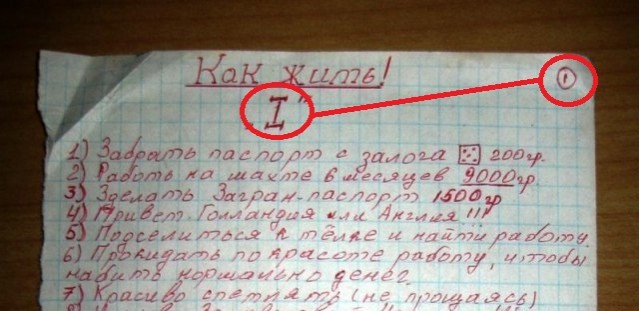 Как жить!
①
"I"
1) Забрать паспорт с залога 200гр.
2) Работь на шахте 6 месяцев 9000гр.
3) Зделать Загран-паспорт 1500гр
4) Привет Голландия или Англия !!!
5) Подселиться к тёлке и найти работу.
6) Прокидать по красоте работу, чтобы
набить нормально денег.
7) Красиво спетлять (не прощаясь)